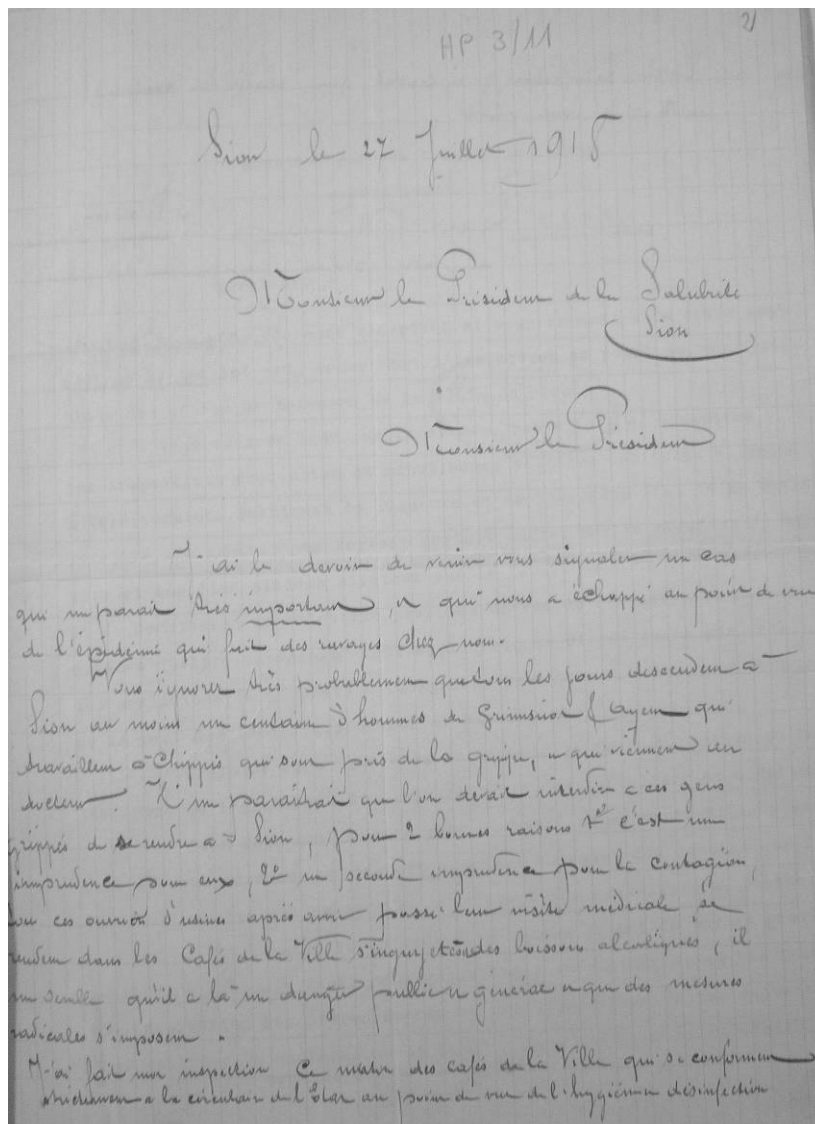 HP 3/11
2)
Sion le 27 Juillet 1918
Monsieur le Président de la Salubrité
Sion
Monsieur le Président
J'ai le devoir de venir vous signaler un cas
qui me parait très important, et qui nous a échappé au point de vue
de l'épidémie qui fait des ravages chez nous.
Vous ignorez très probablement que tous les jours descendent à
Sion au moins un centaine d'hommes de Grimisuat & Ayent qui
travaillent à Chippis qui sont pris de la grippe, et qui viennent au
docteur. Il me paraitrait que l'on devait interdire à ces gens
grippés de se rendre à Sion, pour 2 bonnes raisons 1º c'est une
imprudence pour eux, 2º un seconde imprudence pour la contagion,
ces ouvriers d'usines après avoir passé leur visite médicale se
rendent dans les Cafés de la Ville des boissons alcooliques, il
me semble qu'il a là un danger public en général et que des mesures
radicales s'imposent.
J'ai fait mon inspection ce matin des cafés de la Ville qui se conforment
strictement a la circulaire de l'Etat au point de vue de l'hygiène désinfection